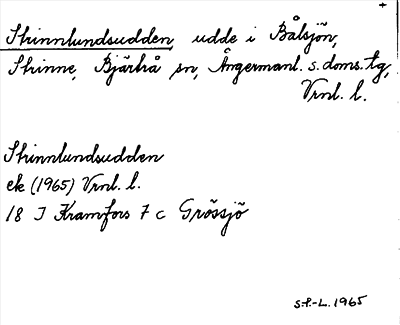 +
Skinnlundsudden, udde i Bålsjön,
Skinne, Bjärtrå sn, Ångermanl. s. doms. tg,
Vrnl. l.
Skinnlundsudden
ek (1965) Vrnl. l.
18 J Kramfors 7 c Grössjö
S.f.-L. 1965